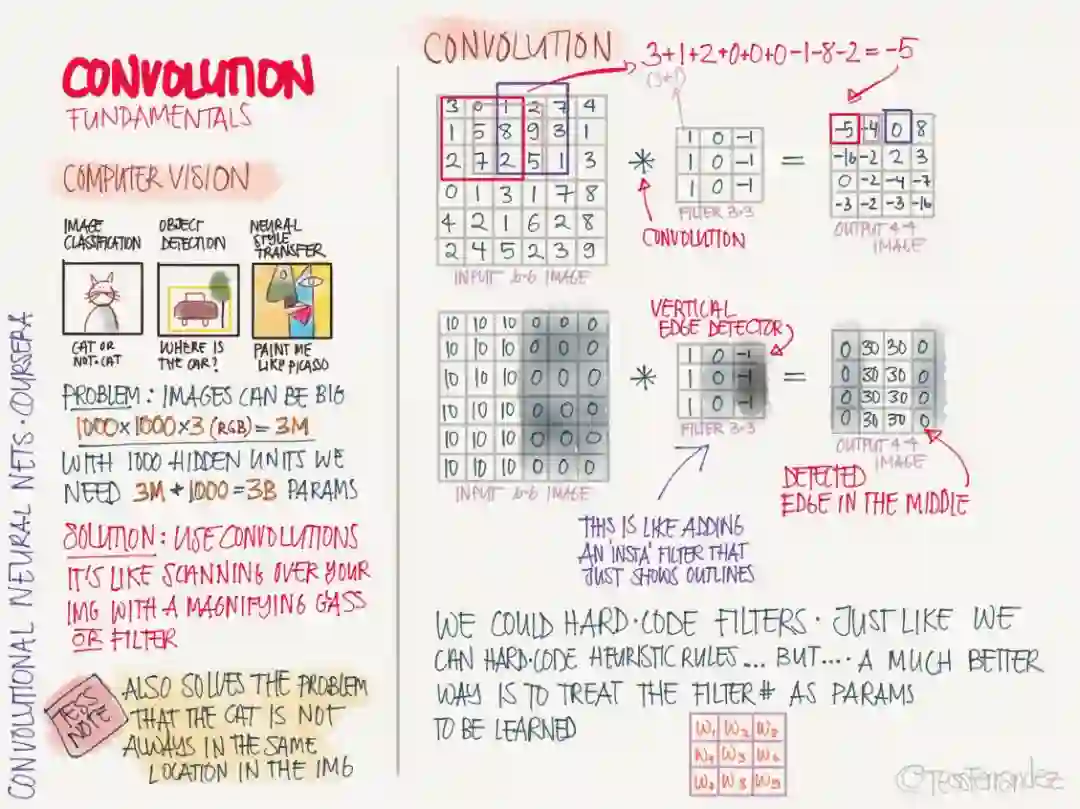 CONVOLUTIONAL NEURAL NETS · COURSERA
CONVOLUTION
FUNDAMENTALS
COMPUTER VISION
IMAGE CLASSIFICATION
OBJECT DETECTION
NEURAL STYLE TRANSFER
CAT OR NOT-CAT
WHERE IS THE CAR?
PAINT ME LIKE PICASSO
PROBLEM: IMAGES CAN BE BIG
1000×1000×3 (RGB) = 3M
WITH 1000 HIDDEN UNITS WE
NEED 3M * 1000 = 3B PARAMS
SOLUTION: USE CONVOLUTIONS
IT'S LIKE SCANNING OVER YOUR
IMG WITH A MAGNIFYING GASS
OR FILTER
TESS NOTE
ALSO SOLVES THE PROBLEM
THAT THE CAT IS NOT
ALWAYS IN THE SAME
LOCATION IN THE IMG
CONVOLUTION
3+1+2+0+0+0-1-8-2 = -5
3 0 1 2 7 4
1 5 8 9 3 1
2 7 2 5 1 3
0 1 3 1 7 8
4 2 1 6 2 8
2 4 5 2 3 9
INPUT 6·6 IMAGE
*
1 0 -1
1 0 -1
1 0 -1
FILTER 3×3
CONVOLUTION
=
-5 -4 0 8
-16 -2 2 3
0 -2 -4 -7
-3 -2 -3 -16
OUTPUT 4·4
IMAGE
10 10 10 0 0 0
10 10 10 0 0 0
10 10 10 0 0 0
10 10 10 0 0 0
10 10 10 0 0 0
10 10 10 0 0 0
INPUT 6·6 IMAGE
*
VERTICAL
EDGE DETECTOR
1 0 -1
1 0 -1
1 0 -1
FILTER 3×3
=
0 30 30 0
0 30 30 0
0 30 30 0
0 30 30 0
OUTPUT 4·4
IMAGE
DETECTED
EDGE IN THE MIDDLE
THIS IS LIKE ADDING
AN 'INSTA' FILTER THAT
JUST SHOWS OUTLINES
WE COULD HARD·CODE FILTERS · JUST LIKE WE
CAN HARD·CODE HEURISTIC RULES... BUT.... A MUCH BETTER
WAY IS TO TREAT THE FILTER # AS PARAMS
TO BE LEARNED
W1 W2 W3
W4 W5 W6
W7 W8 W9
@TessFerrandez